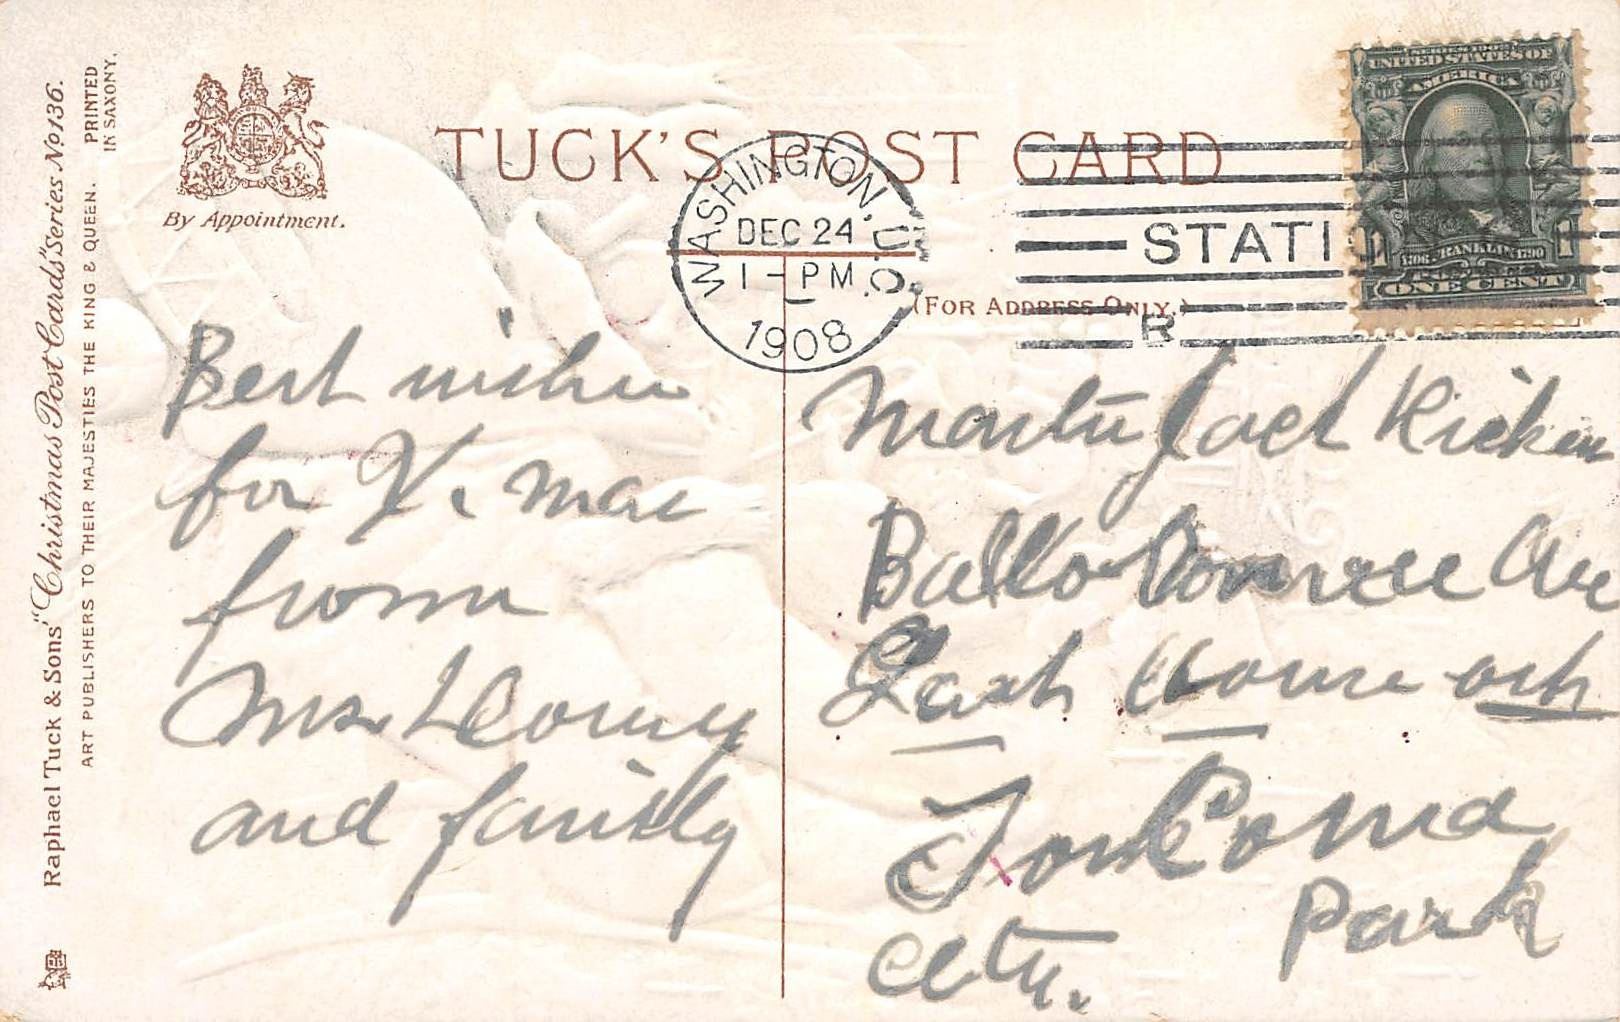 TUCK'S POST CARD
By Appointment.
(FOR ADDRESS ONLY.)
WASHINGTON, D.C.
DEC 24
1 - PM
1908
STATI
B
SERIES 1902
UNITED STATES OF
AMERICA
1706 FRANKLIN 1790
1 1
ONE CENT
Raphael Tuck & Sons' "Christmas Post Cards" Series No 136.
ART PUBLISHERS TO THEIR MAJESTIES THE KING & QUEEN.
PRINTED
IN SAXONY.
Best wishes
for X. mas
from
Mrs.
and family
Jack
Ave
Park
City.